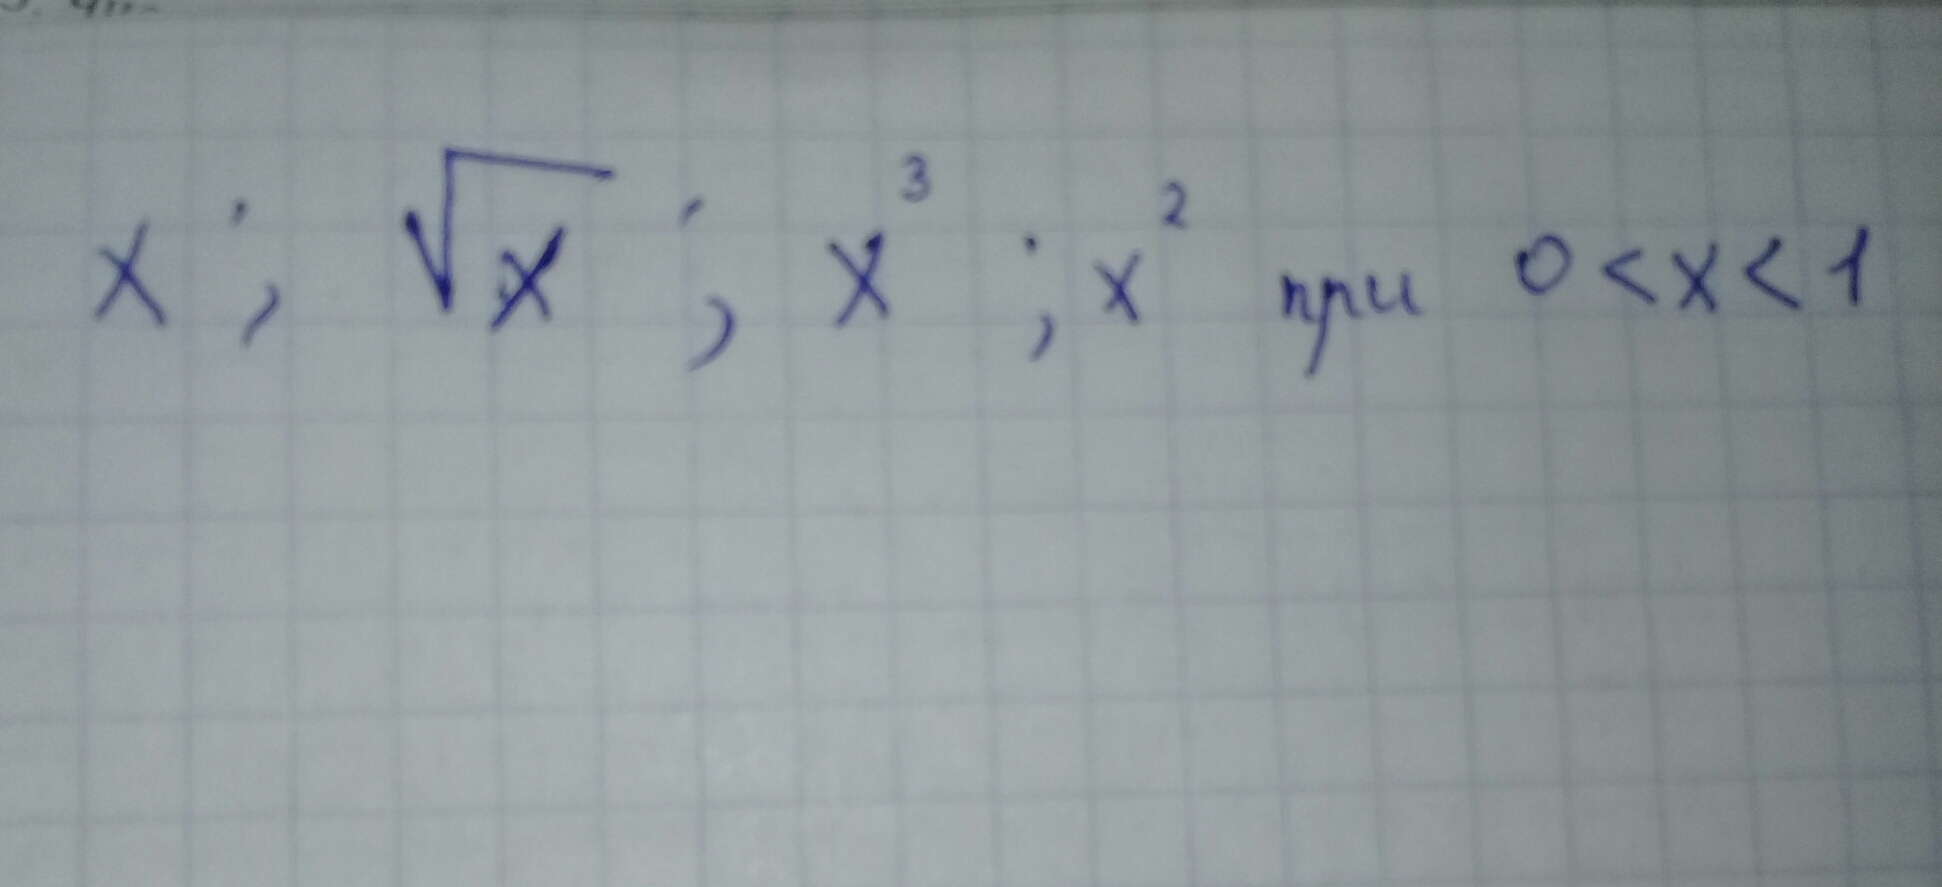 x ; √x ; x³ ; x² при 0 < x < 1